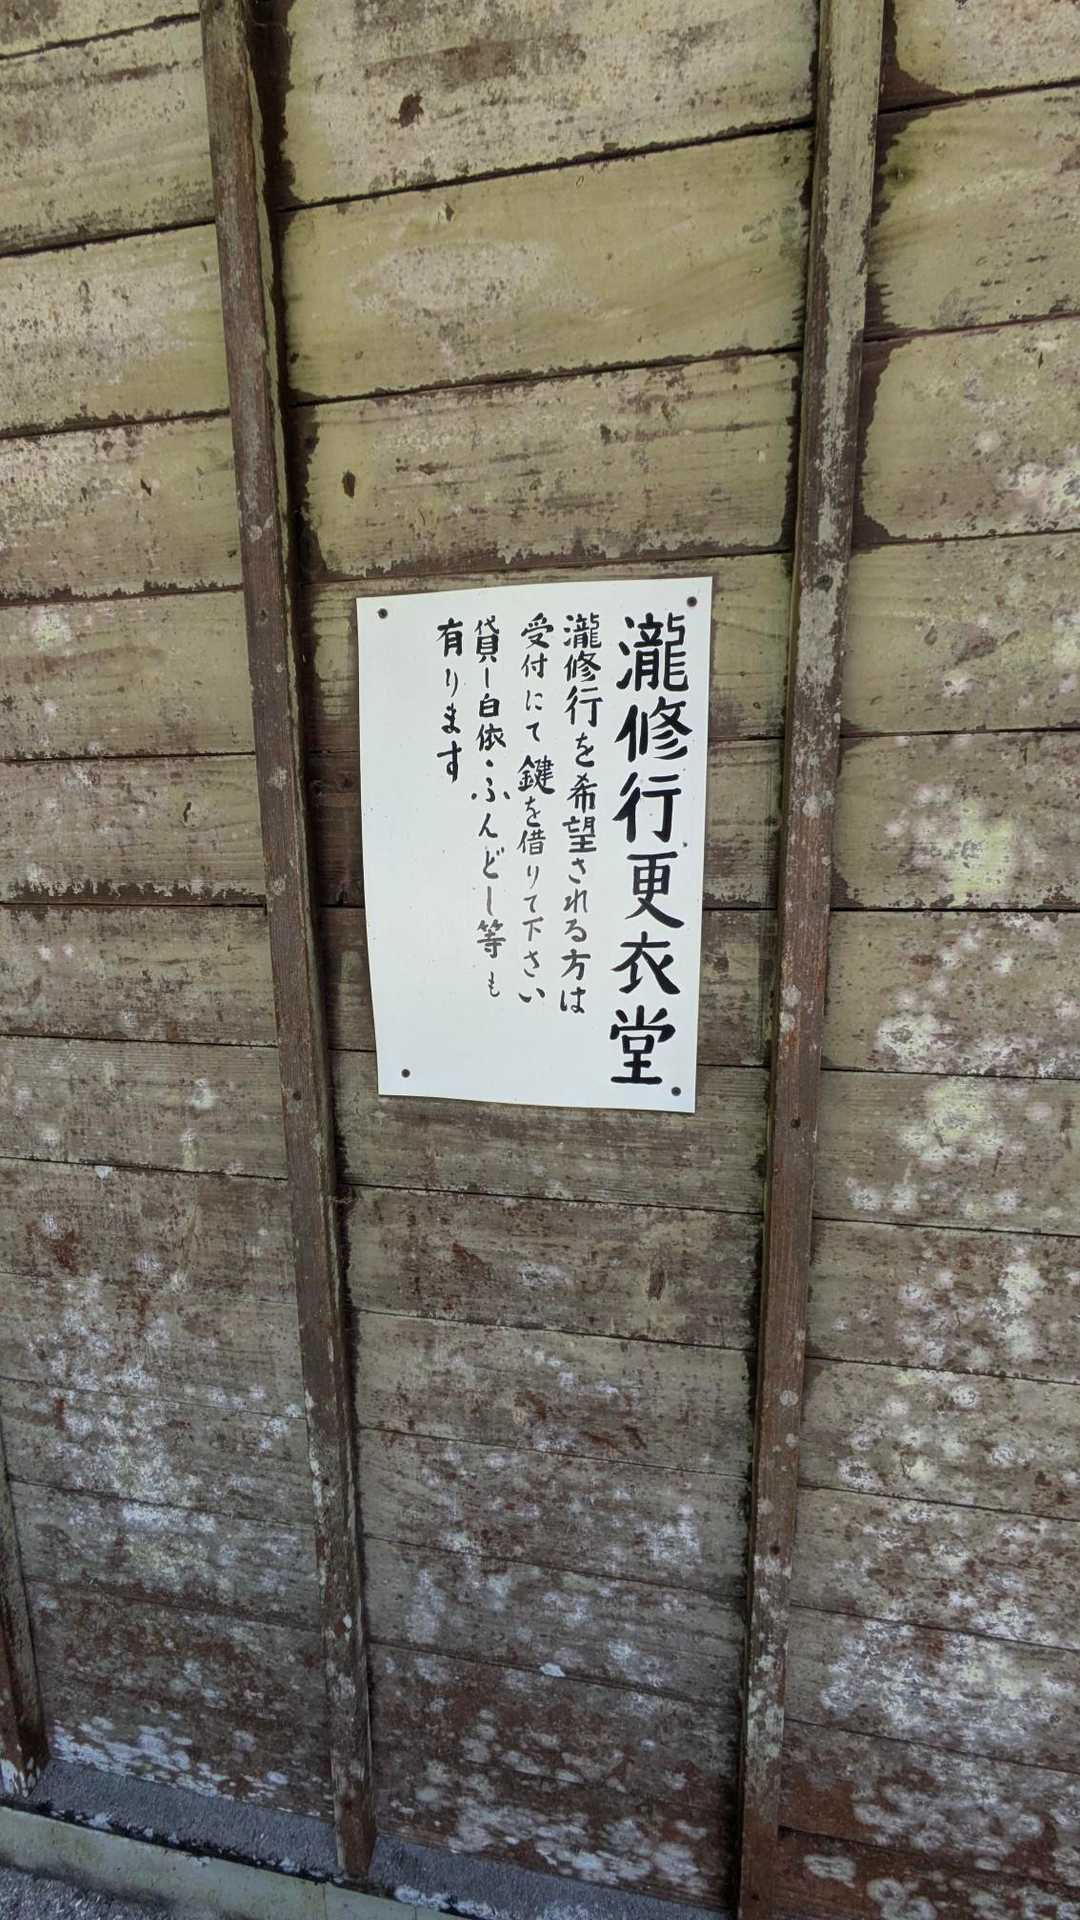 瀧修行更衣堂
瀧修行を希望される方は
受付にて鍵を借りて下さい
貸し白依・ふんどし等も
有ります